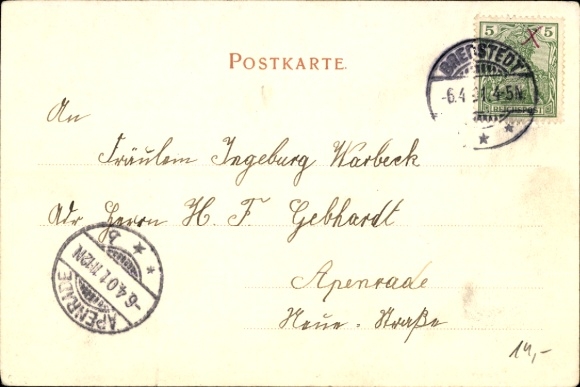 POSTKARTE.
5 5
REICHSPOST
BREDSTEDT
-6.4.01.4-5N.
An
Fräulein Ingeburg Warbeck
Adr Herrn H. F. Gebhardt
Apenrade
Neue-Straße
APENRADE
-6.4.01.11-12N
b
14,-